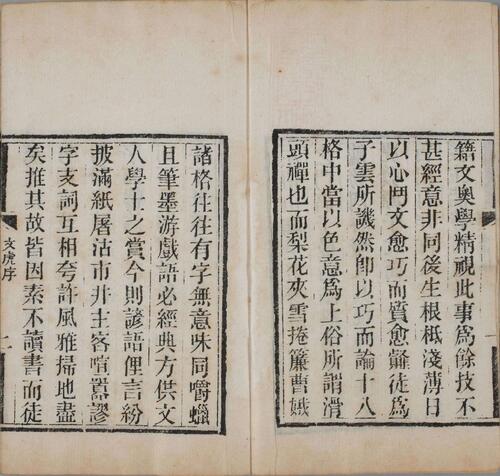 籍文奧學精視此事爲餘技不
甚經意非同後生根柢淺薄日
以心鬥文愈巧而質愈雕徒爲
子雲所譏然卽以巧而論十八
格中當以色意爲上俗所謂滑
頭禪也而梨花夾雪捲簾曹娥
諸格往往有字無意味同嚼蠟
且筆墨游戲語必經典方供文
人學士之賞今則諺語俚言紛
披滿紙屠沽市井主客喧囂謬
字支詞互相夸許風雅掃地盡
矣推其故皆因素不讀書而徒
文虎序